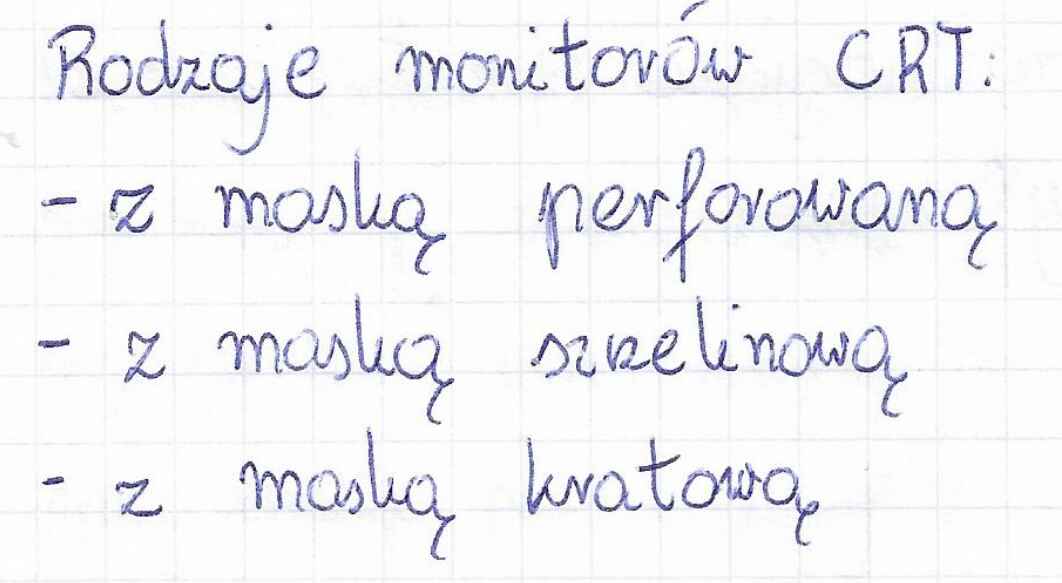 Rodzaje monitorów CRT:
- z maską perforowaną
- z maską szczelinową
- z maską kratową